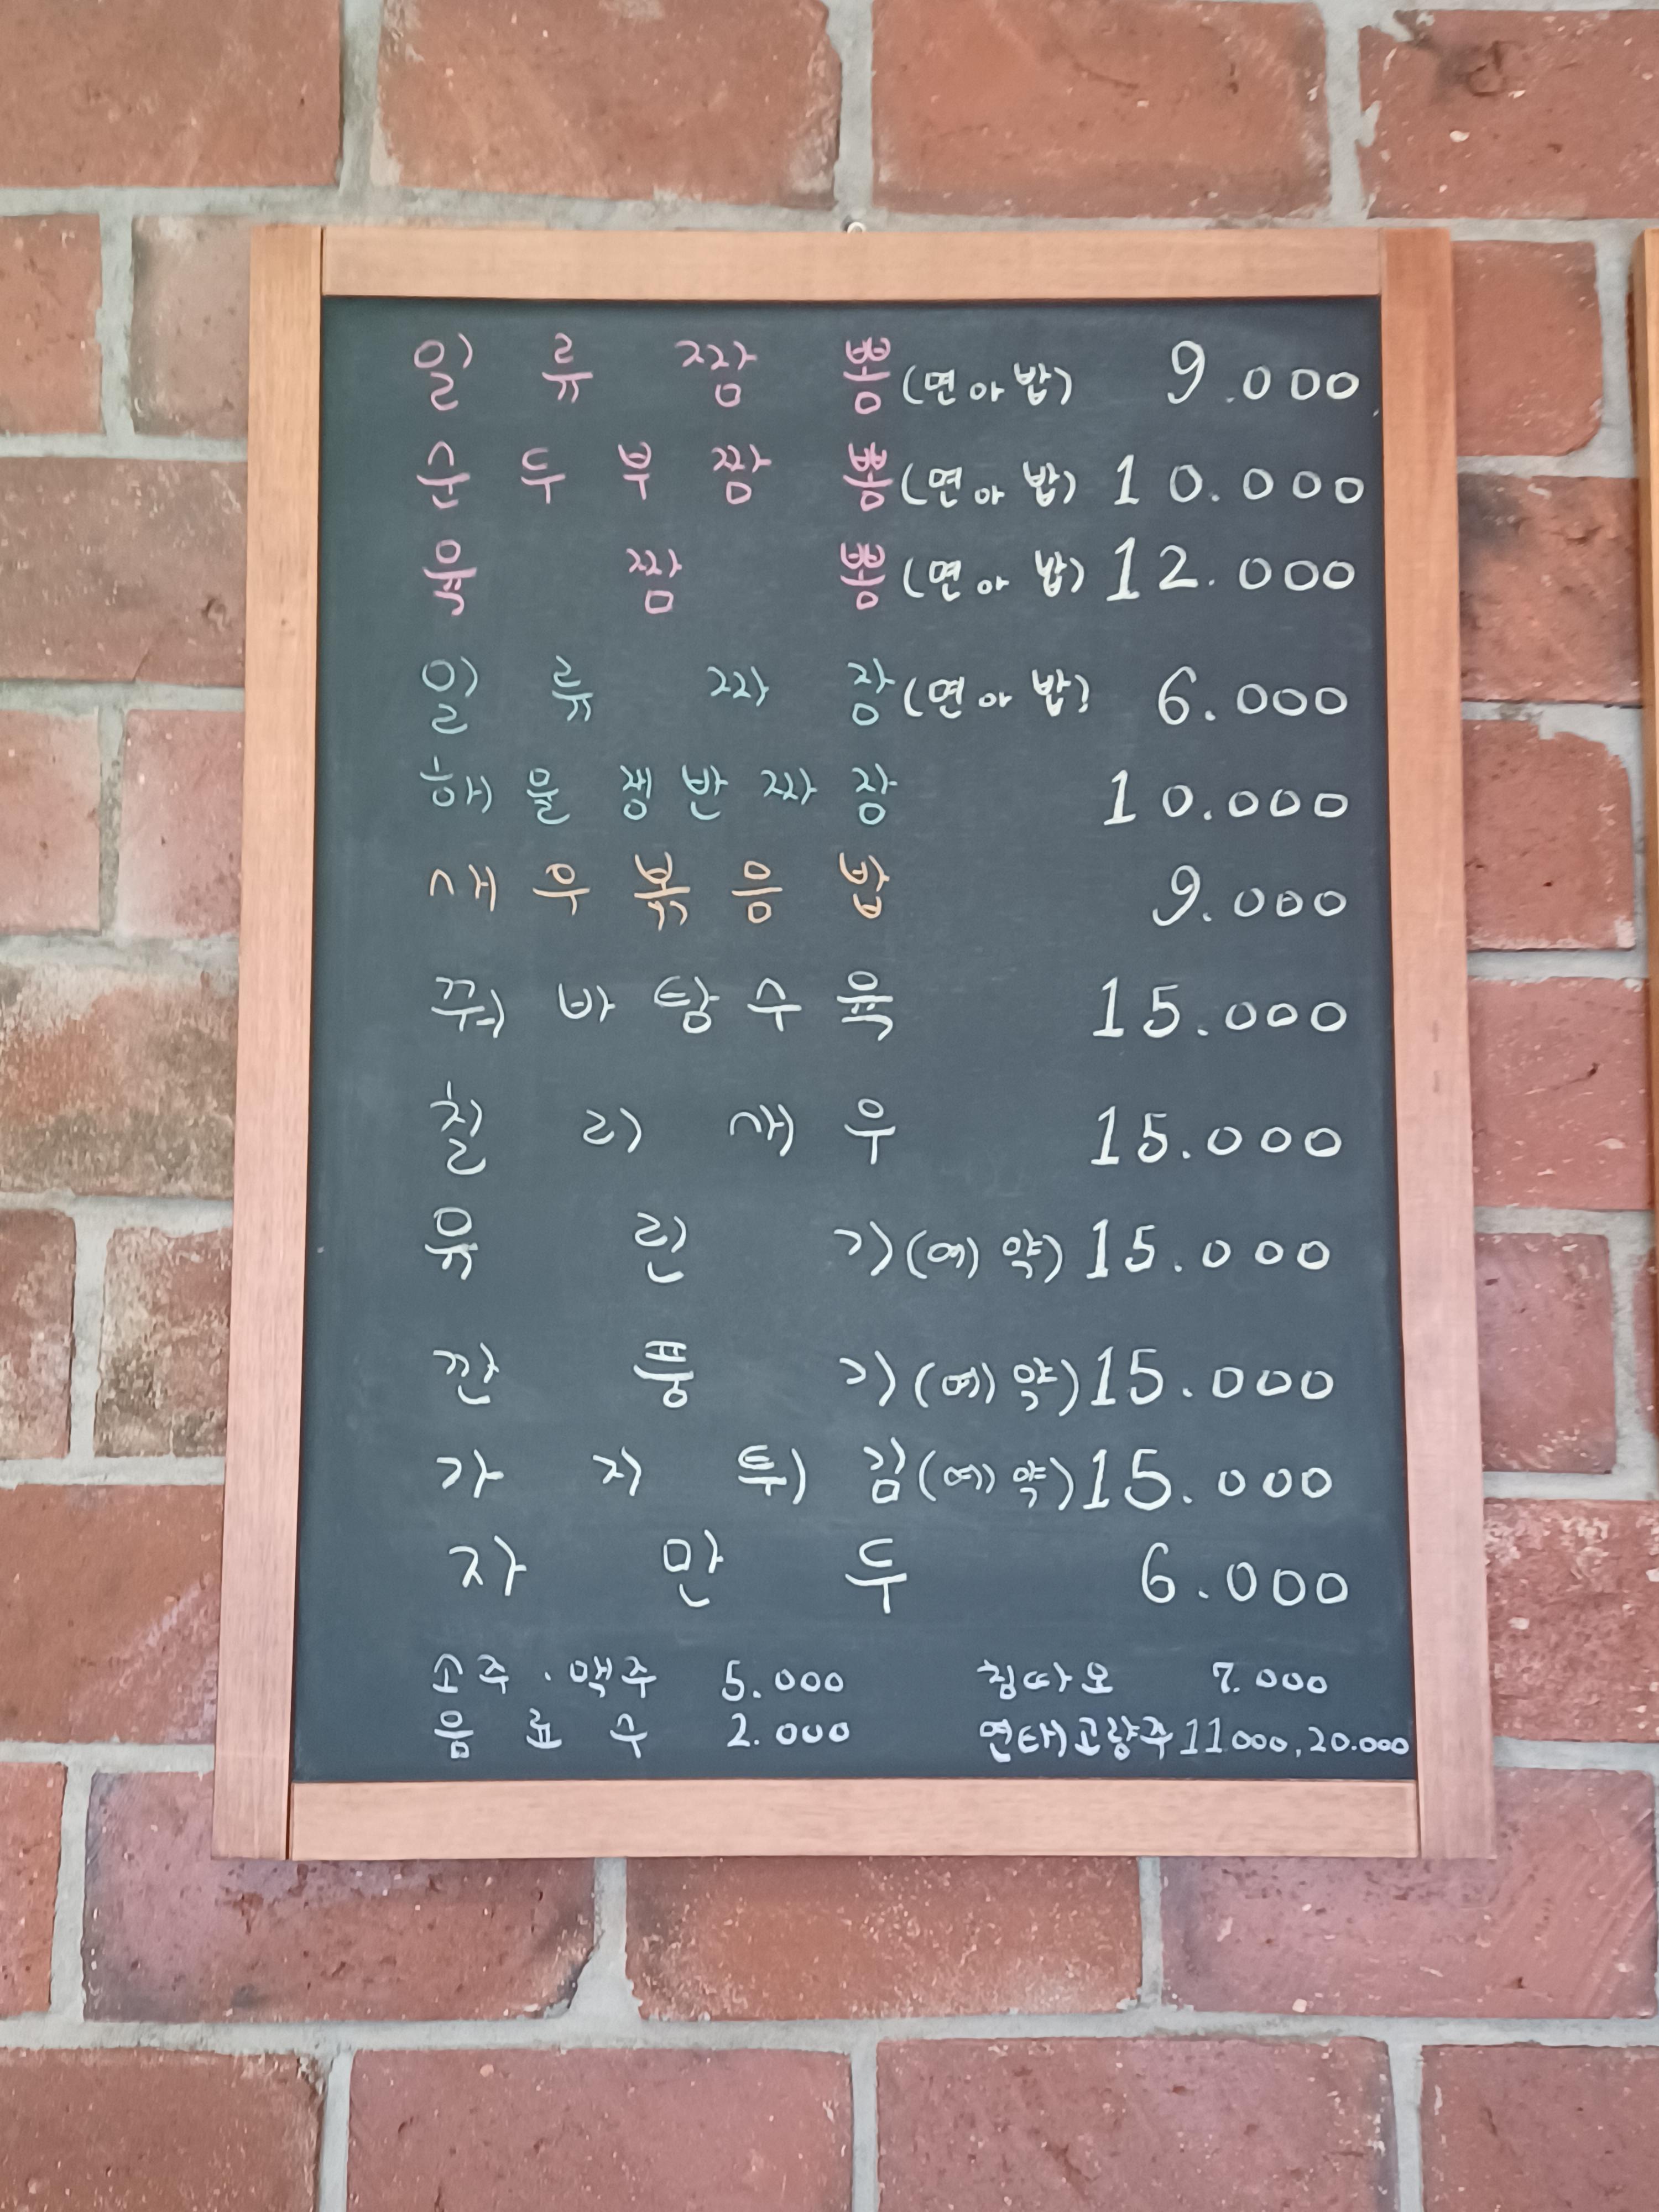 일류짬뽕(면or밥) 9.000
순두부짬뽕(면or밥) 10.000
육짬뽕(면or밥) 12.000
일류짜장(면or밥) 6.000
해물쟁반짜장 10.000
새우볶음밥 9.000
꿔바탕수육 15.000
칠리새우 15.000
유린기(예약) 15.000
깐풍기(예약) 15.000
가지튀김(예약) 15.000
자만두 6.000
소주·맥주 5.000 칭따오 7.000
음료수 2.000 연태고량주 11000, 20.000